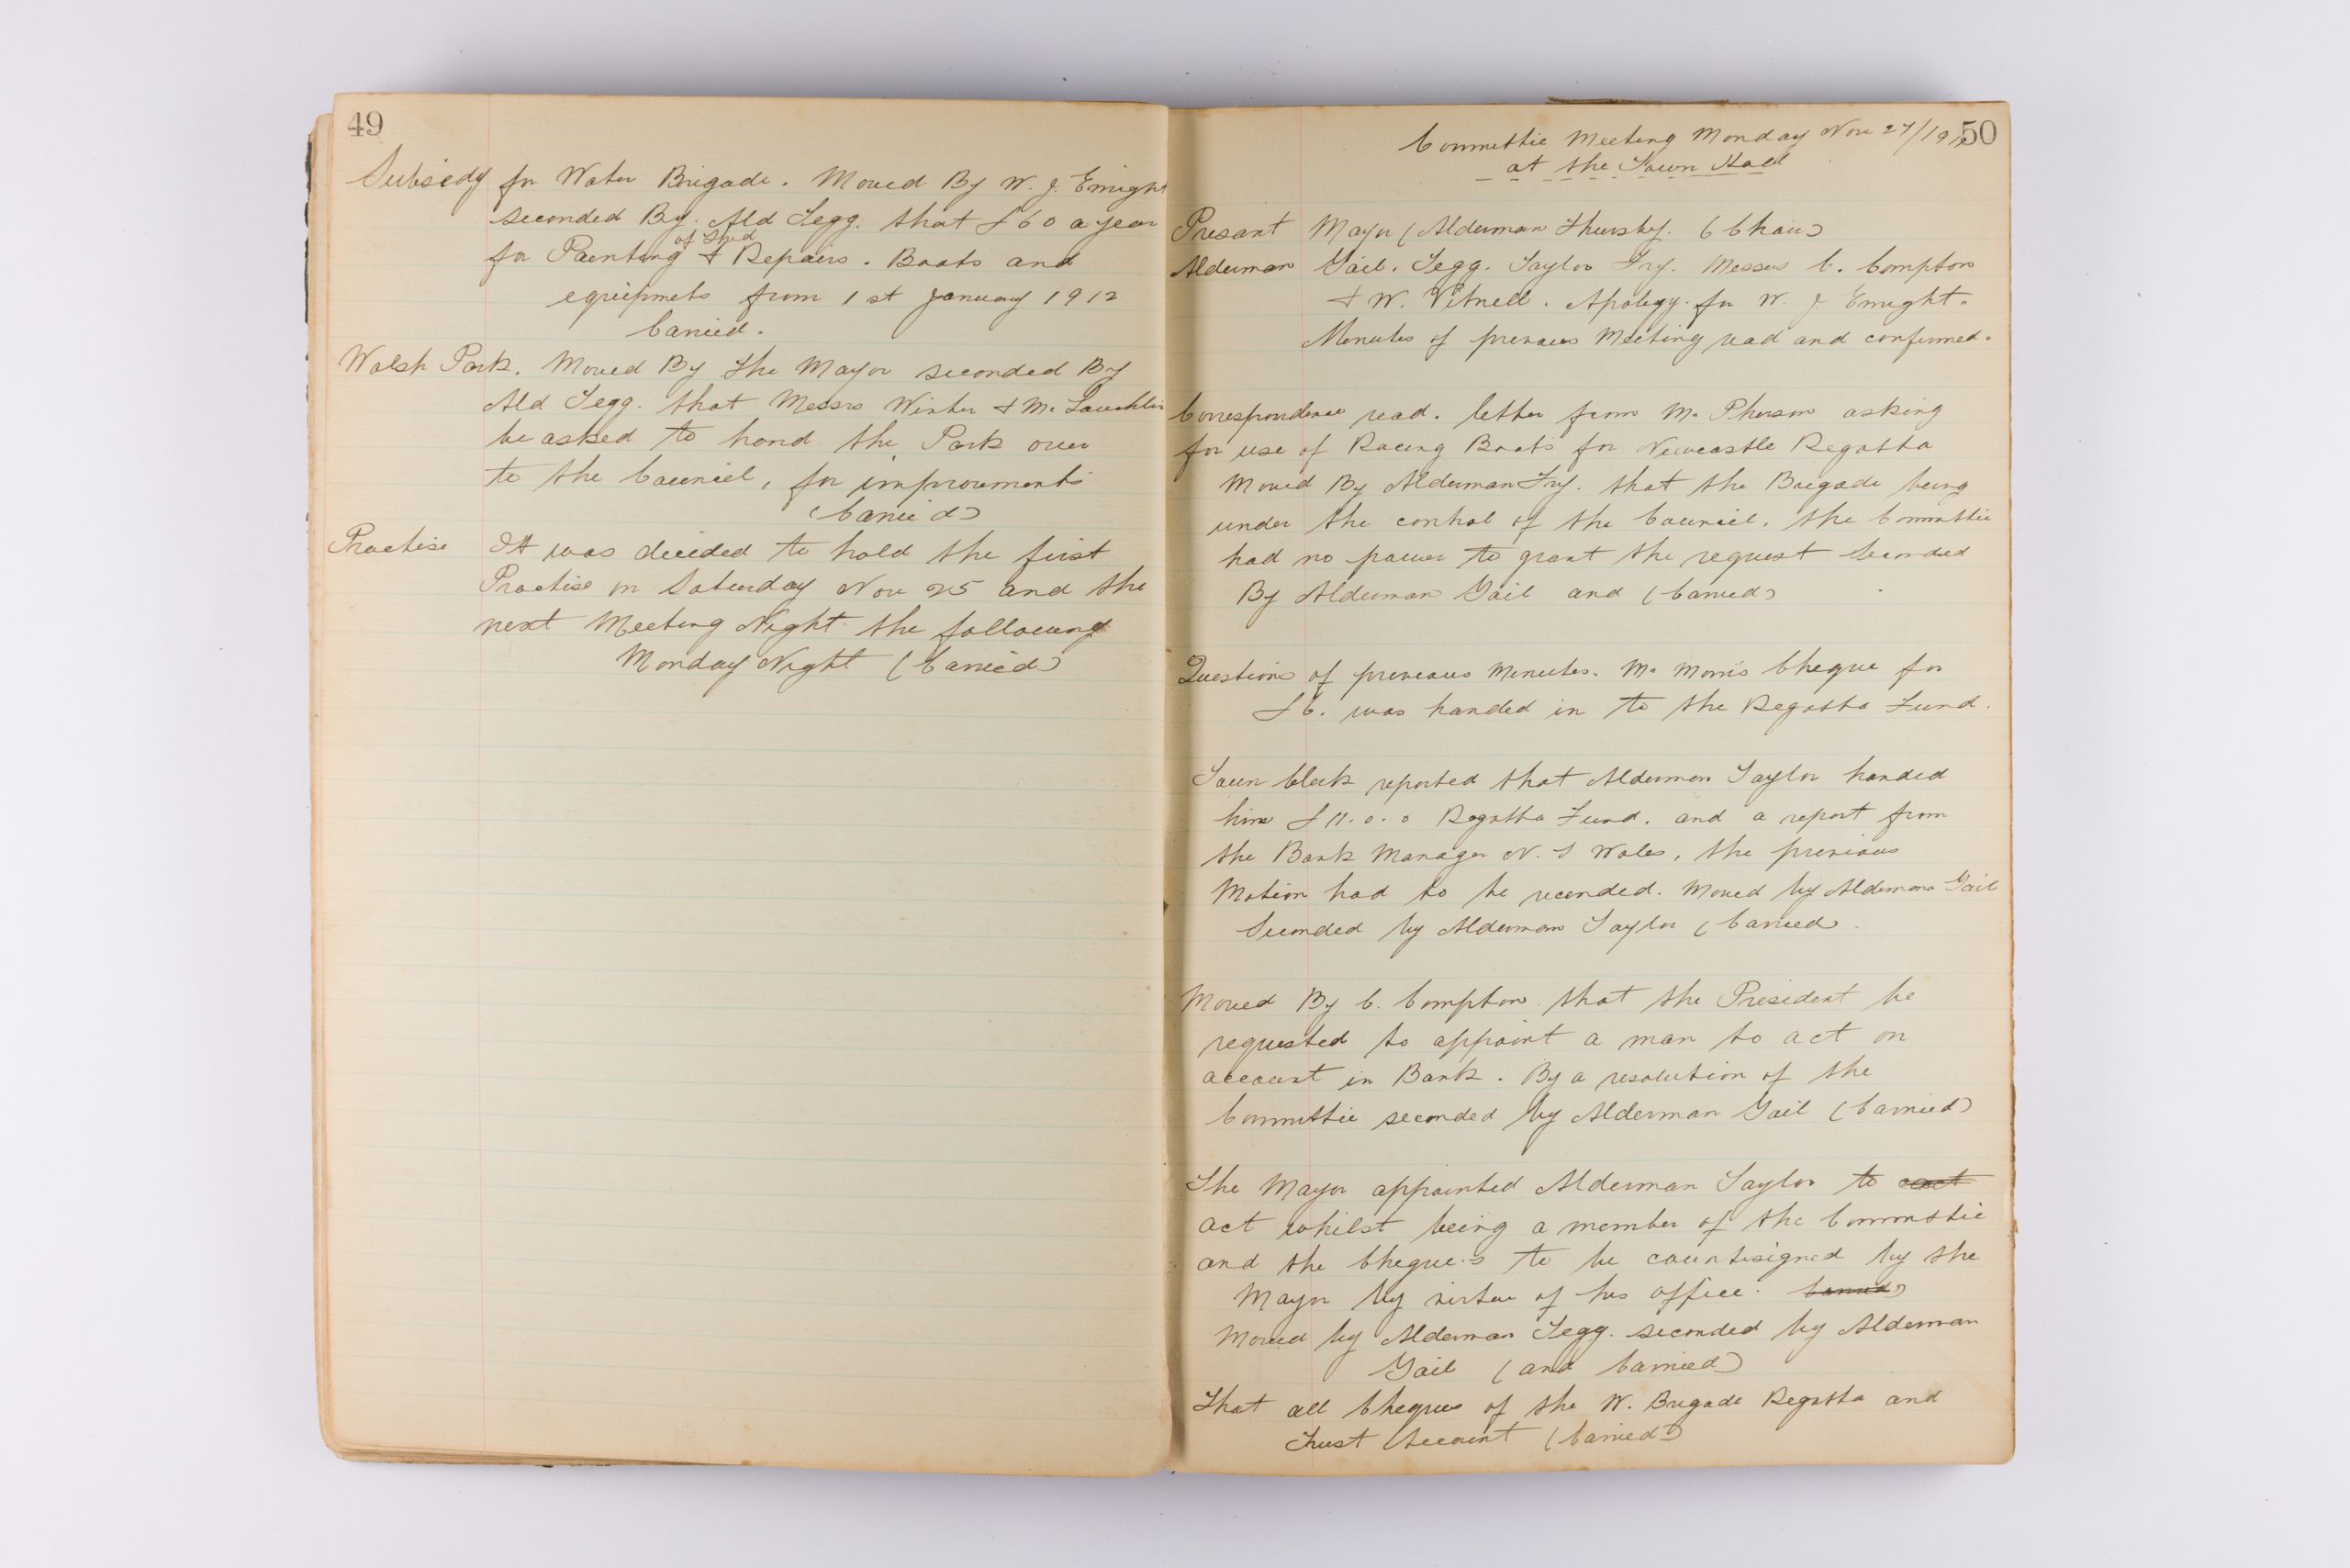 49
Subsidy for Water Brigade. Moved By W. J. Enright
seconded By. Ald Tegg. that £60 a year
of Shed
for Painting & Repairs. Boats and
equipmets from 1st January 1912
Carried.
Walsh Park. Moved By the Mayor seconded By
Ald Tegg. that Messrs Winter & Mc Lauchlin
be asked to hand the Park over
to the Council, for improvments
(Carried)
Practise It was decided to hold the first
Practise on Saturday Nov 25 and the
next Meeting Night the following
Monday Night (Carried)
50
Committie Meeting Monday Nov 27/19
at the Town Hall
Presant Mayor (Alderman Thursby. (Chair)
Alderman Gail. Tegg. Taylor Fry. Messrs C. Compton
& W. Vitnell. Apology. for W. J. Enright.
Minutes of prevous Meeting read and confirmed.
Correspondence read. letter from Mc Pherson asking
for use of Racing Boats for Newcastle Regatta
Moved By Alderman Fry. that the Brigade being
under the control of the Council, the Committie
had no power to grant the request Seconded
By Alderman Gail and (Carried)
Questions of preveous Minutes. Mr Morris Cheque for
£6. was handed in to the Regatta Fund.
Town Clerk reported that Alderman Taylor handed
him £11.0.0 Regatta Fund. and a report from
the Bank Manager N. S Wales, the previous
Motion had to be recended. Moved by Alderman Gail
Seconded by Alderman Taylor (Carried)
Moved By C. Compton that the President be
requested to appoint a man to act on
account in Bank. By a resolution of the
Committie seconded by Alderman Gail (Carried)
The Mayor appointed Alderman Taylor to act
act whilst being a member of the Committie
and the Cheques to be countisigned by the
Mayor by virtue of his office. Carried)
Moved by Alderman Tegg. seconded by Alderman
Gail (and Carried)
That all Cheques of the W. Brigade Regatta and
Trust Account (Carried)